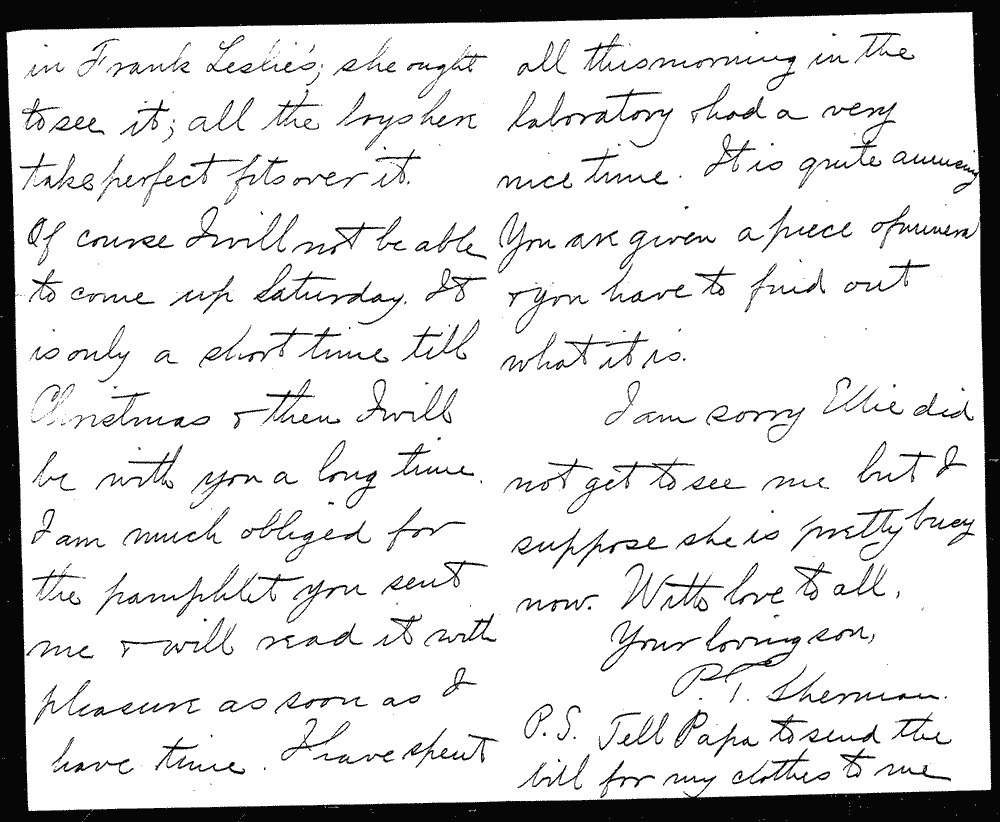 in Frank Leslie's; she ought
to see it; all the boys here
take perfect fits over it.
Of course I will not be able
to come up Saturday. It
is only a short time till
Christmas & then I will
be with you a long time.
I am much obliged for
the pamphlet you sent
me & will read it with
pleasure as soon as I
have time. I have spent
all this morning in the
laboratory & had a very
nice time. It is quite amusing
You are given a piece of mineral
& you have to find out
what it is.
I am sorry Ellie did
not get to see me but I
suppose she is pretty busy
now. With love to all,
Your loving son,
P. T. Sherman.
P.S. Tell Papa to send the
bill for my clothes to me